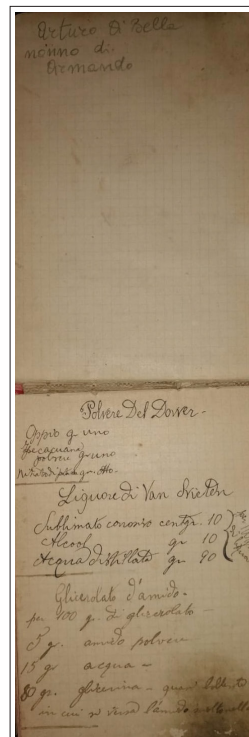 Arturo Di Bella
nonno di
Armando
Polvere Del Dower -
Oppio g. uno
Ipecacuana
polvere g. uno
Nitrato di g. otto.
Liquore di Van Swieten
Sublimato corrosivo centigr. 10
Alcool gr 10
Acqua distillata gr 90
Glicerolato d'amido.
per 100 g. di glicerolato -
5 g. amido polvere
15 g acqua -
80 gr. glicerina -
in cui si l'amido